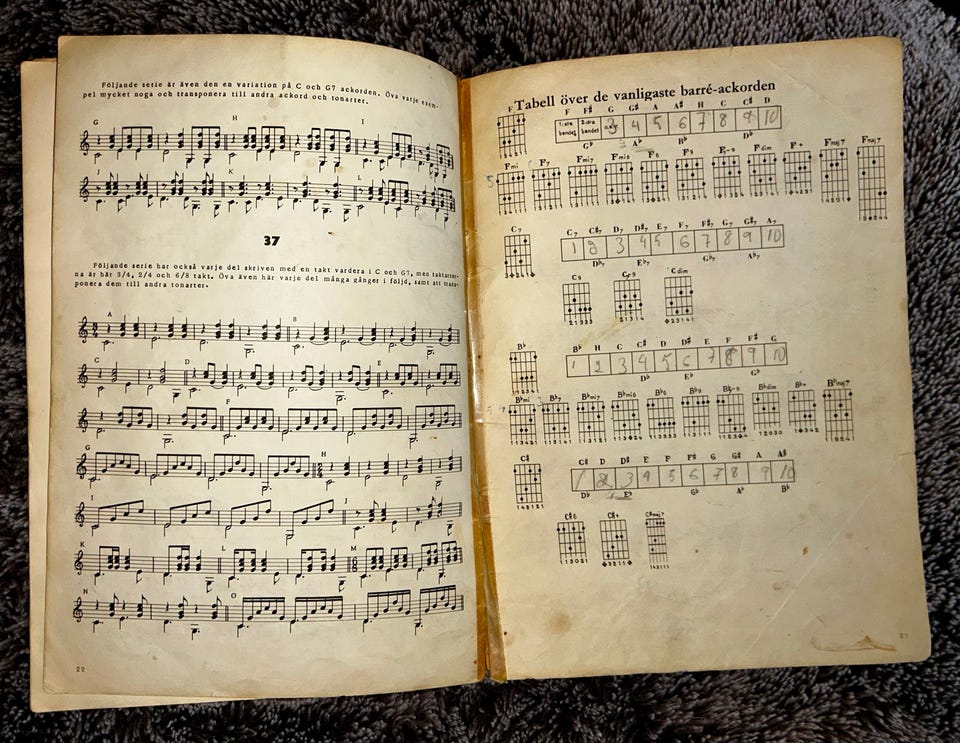 Följande serie är även den en variation på C och G7 ackorden. Öva varje exem-
pel mycket noga och transponera till andra ackord och tonarter.
G H I
J K L
37
Följande serie har också varje del skriven med en takt vardera i C och G7, men taktarter-
na är här 3/4, 2/4 och 6/8 takt. Öva även här varje del många gånger i följd, samt att trans-
ponera dem till andra tonarter.
A B
C D E
F
G H
I J
K L M
N O
22
Tabell över de vanligaste barré-ackorden
F F F# G G# A A# H C C# D
Tista bandet 2dra bandet 4 5 6 7 8 9 10
G♭ A♭ B♭ D♭
Fmi F7 Fmi7 Fmi6 F6 F9 F7-9 Fdim F+ Fmaj7 Fmaj7
C7 C7 C#7 D7 D#7 E7 F7 F#7 G7 G#7 A7
1 2 3 4 5 6 7 8 9 10
D♭7 E♭7 G♭7 A♭7
C9 C dim
21333 23141
B♭ B♭ H C C# D D# E F F# G
1 2 3 4 5 6 7 8 9 10
D♭ E♭ G♭
B♭mi B♭7 B♭mi7 B♭mi6 B♭6 B♭9 B♭7-9 B♭dim B♭+ B♭maj7
C# C# D D# E F F# G G# A A#
1 2 3 4 5 6 7 8 9 10
D♭ E♭ G♭ A♭ B♭
143121
C#6 C#+ C#maj7
113021
23